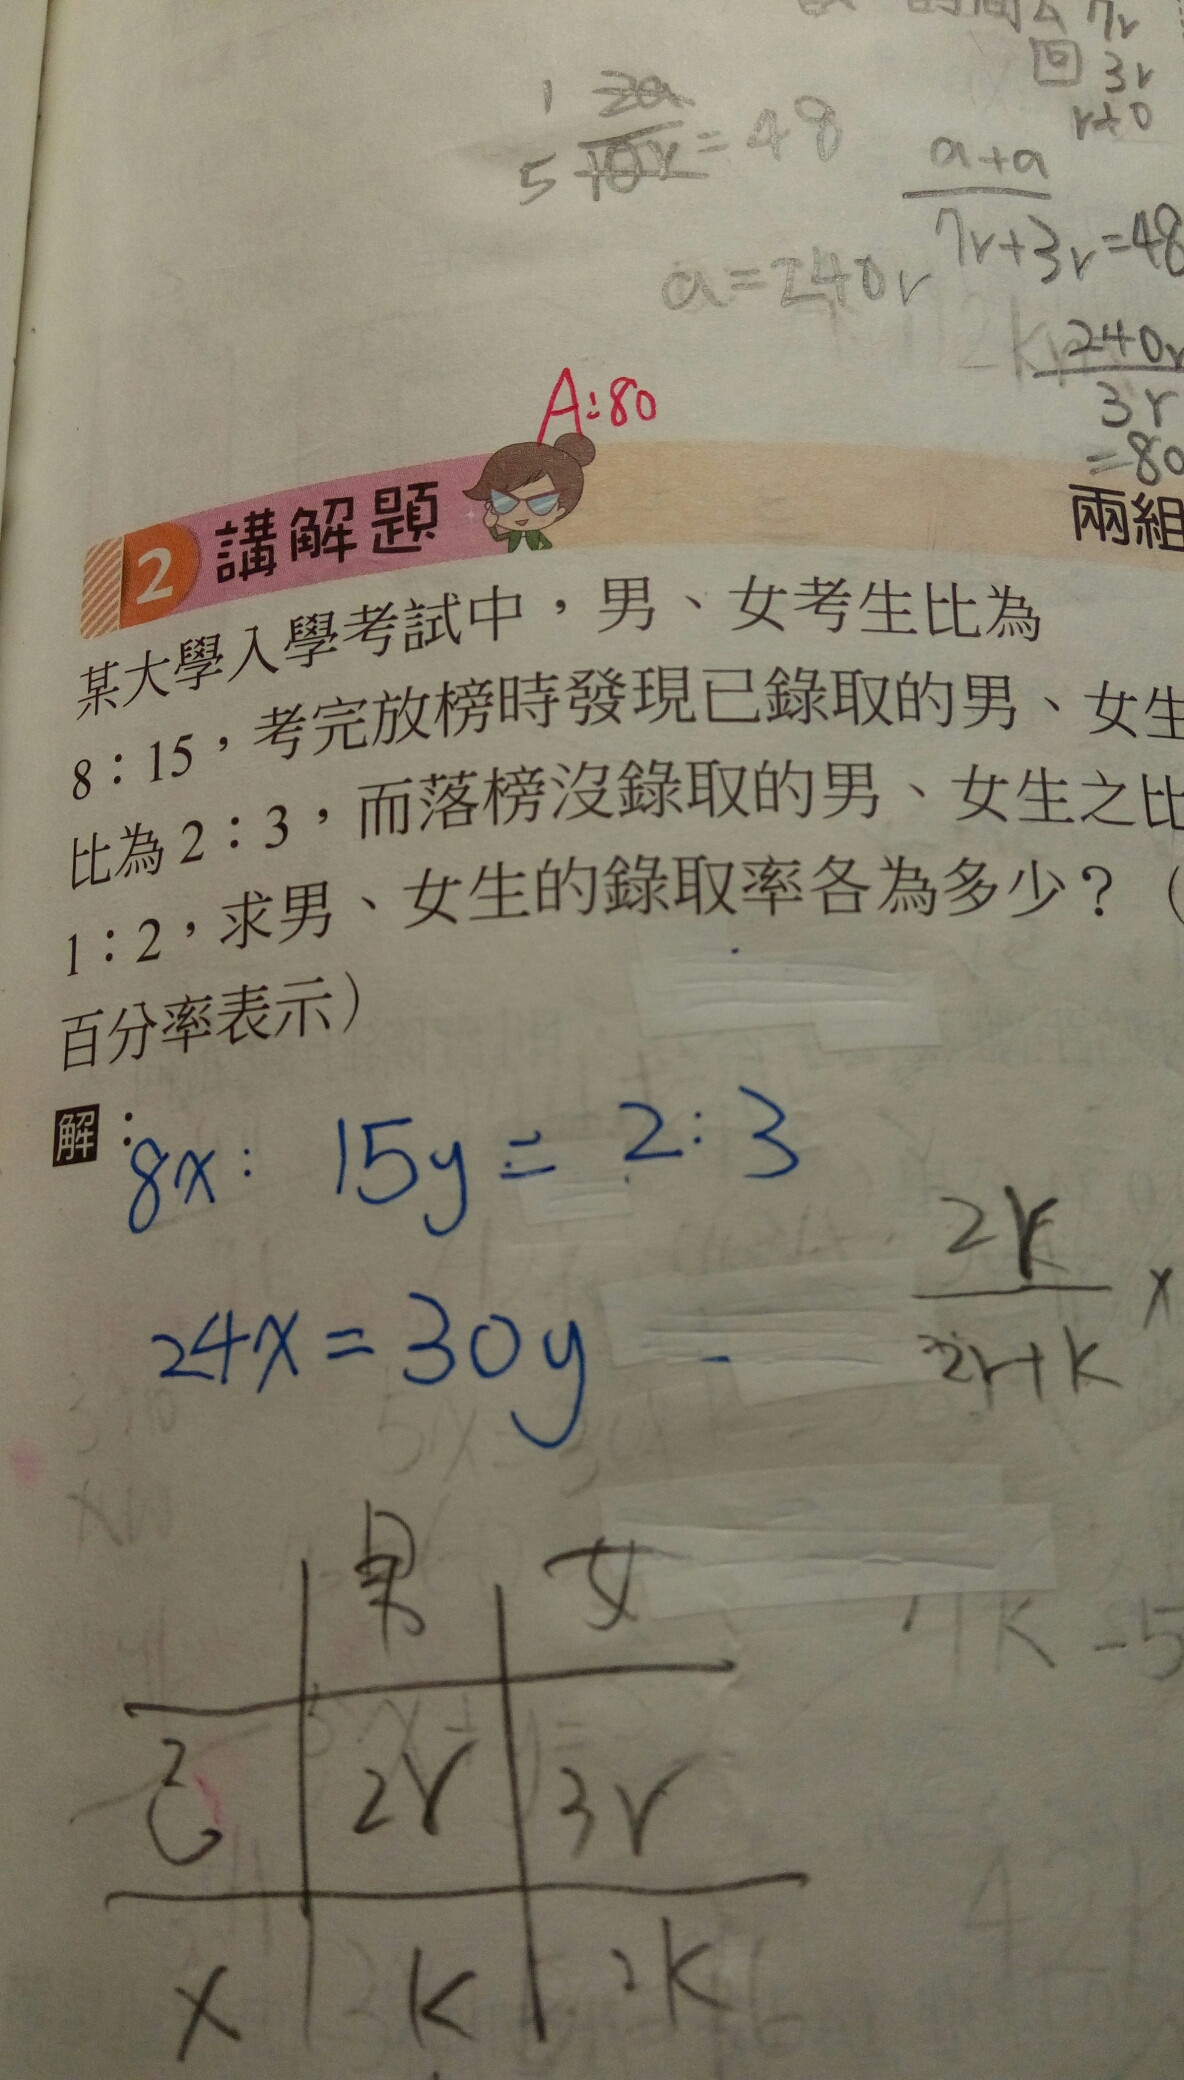 7r
回 3r
r≠0
1 2a
5 10r = 48
a+a
7r+3r=48
a=240r
240r
3r
=80
A:80
2 講解題
兩組
某大學入學考試中，男、女考生比為
8：15，考完放榜時發現已錄取的男、女生
比為2：3，而落榜沒錄取的男、女生之比
1：2，求男、女生的錄取率各為多少？（
百分率表示）
解：
8x: 15y = 2:3
24x = 30y
2r
2r+k
x
男 女
2r 3r
x k 2k